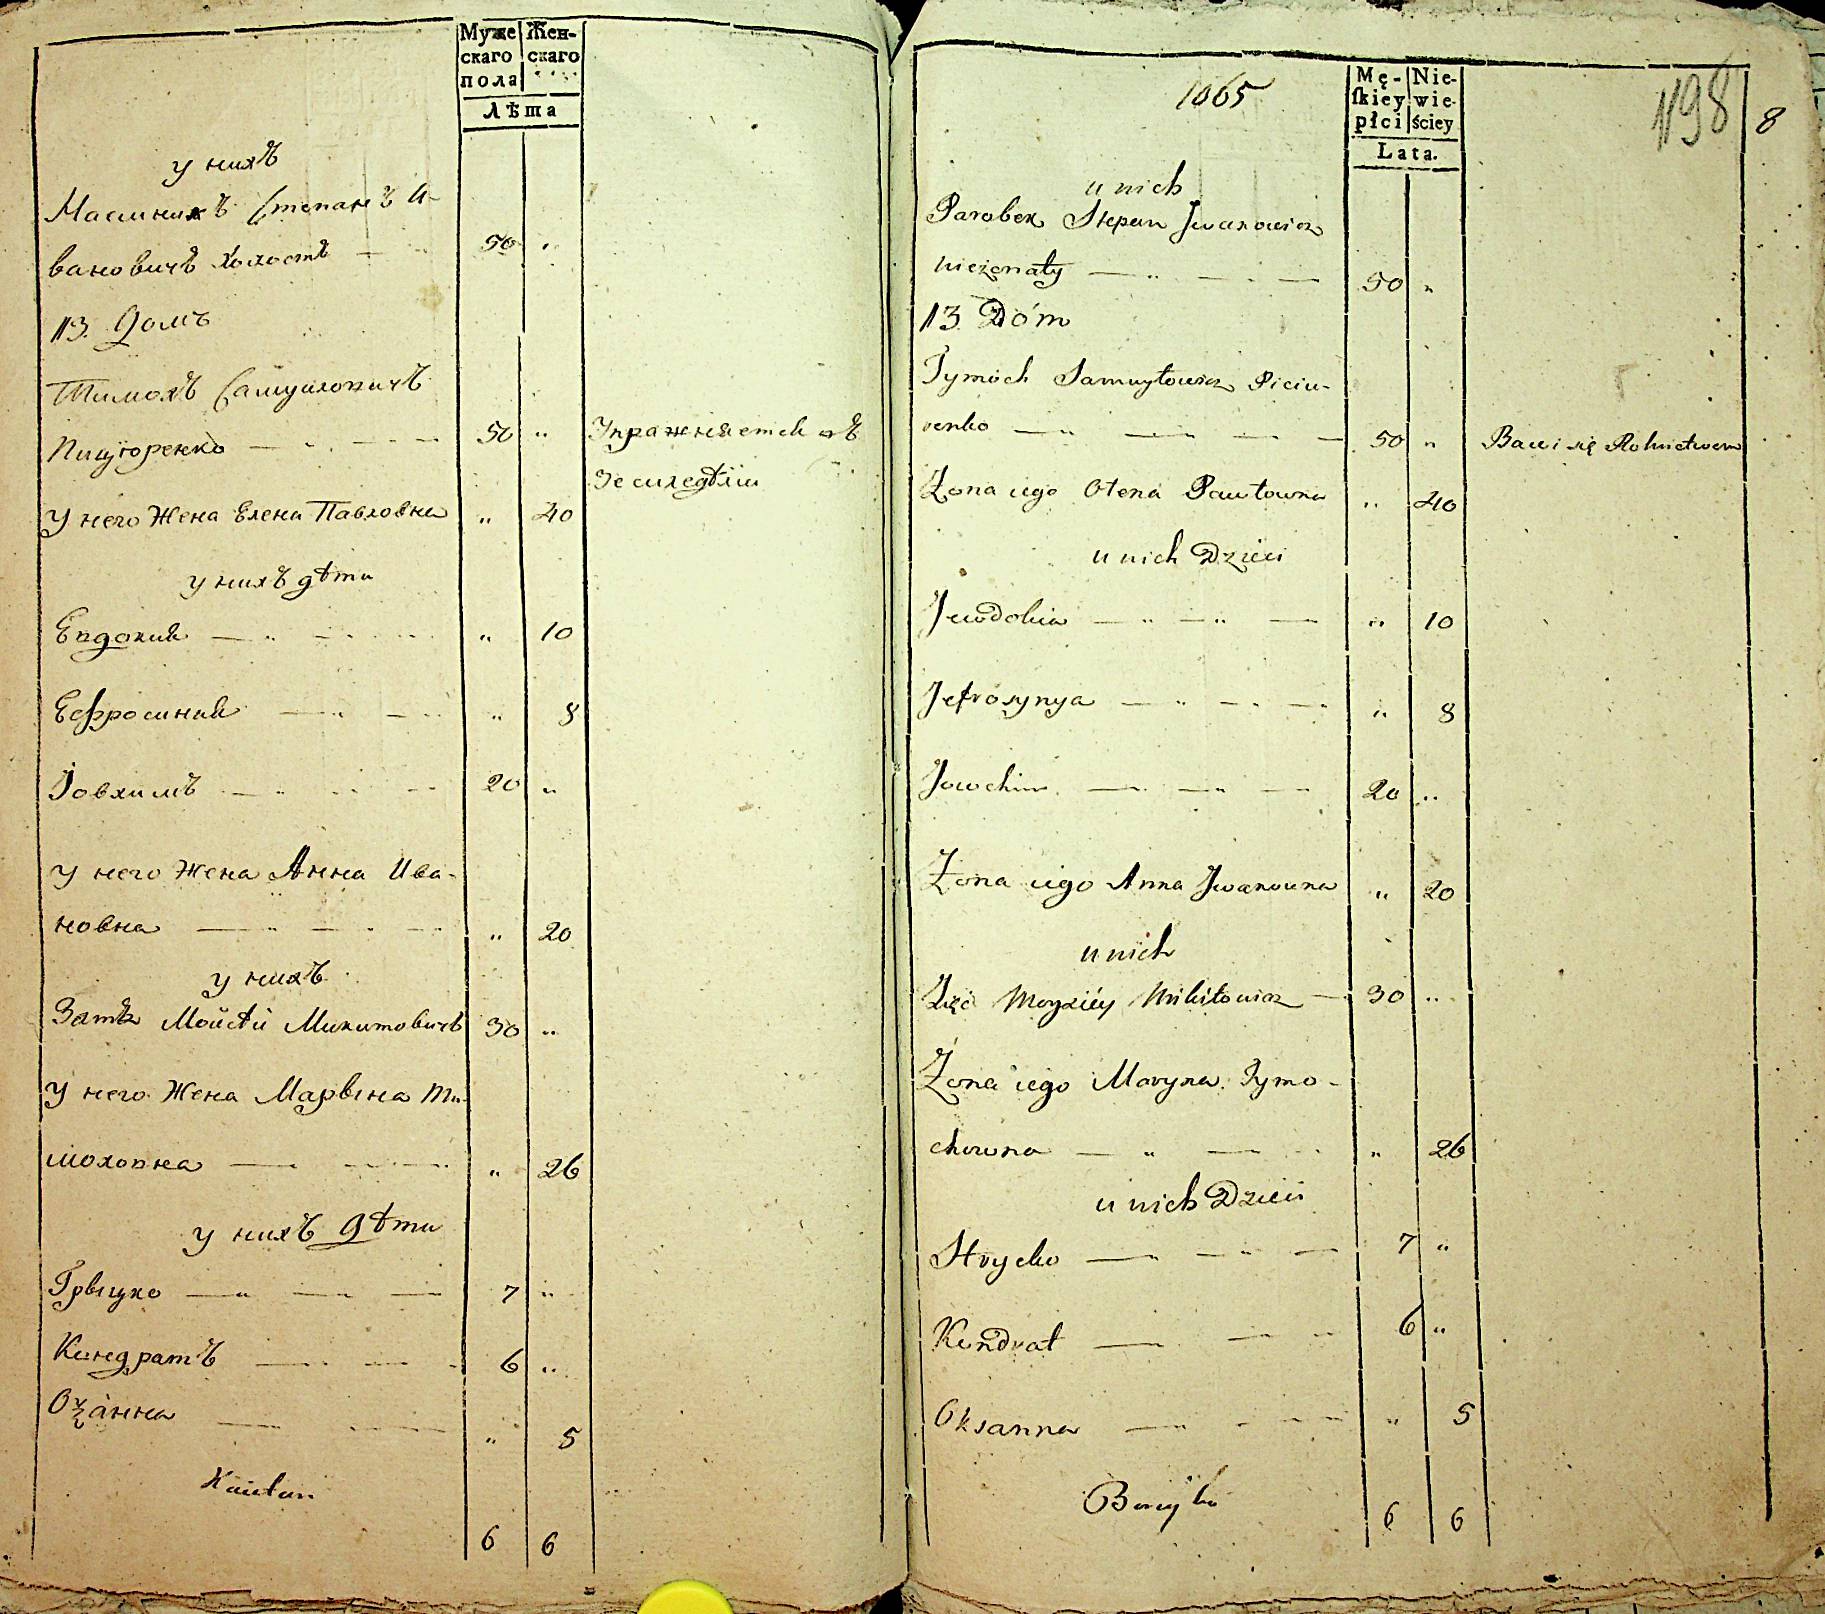 Муже Жен-
скаго скаго
пола
Лѣта
у нихъ
Степанъ И-
вановичъ холостъ — 50 "
13. Домъ
Тимохъ Самуиловичъ
Пицюренко — " — 50 " Упражняется въ
земледѣлїи
У него Жена Елена Павловна " 40
у нихъ дѣти
Евдокия — " — " 10
Ефросиния — " — " 8
Іовхимъ — " — 20 "
У него Жена Анна Ива-
новна — " — " 20
у нихъ
Зать Мойсѣй Микитовичъ 30 "
У него Жена Марына Ти-
моховна — " 26
у нихъ Дѣти
Грыцко — " — 7 "
Кондратъ — 6 "
Оѯанна — " 5
6 6
1065
Mę- Nie-
ſkiey wie-
płci ściey
Lata.
1198 8
u nich
Parobek Stepan Jwanowicz
nieżonaty — " — 50 "
13 Dóm
Tymoch Samuyłowicz Piciu-
renko — " — 50 " Bawi się Rolnictwem
Żona iego Ołena Pawłowna " 40
u nich Dzieci
Jewdokia — " — " — " 10
Jefrosynya — " — " 8
Jowchim — " — 20 "
Żona iego Anna Jwanowna " 20
u nich
Zięć Moyziey Mikitowicz — 30 "
Żona iego Maryna Tymo-
chowna — " — " 26
u nich Dzieci
Hrycko — " — 7 "
Kondrat — 6 "
Oksanna — " 5
6 6